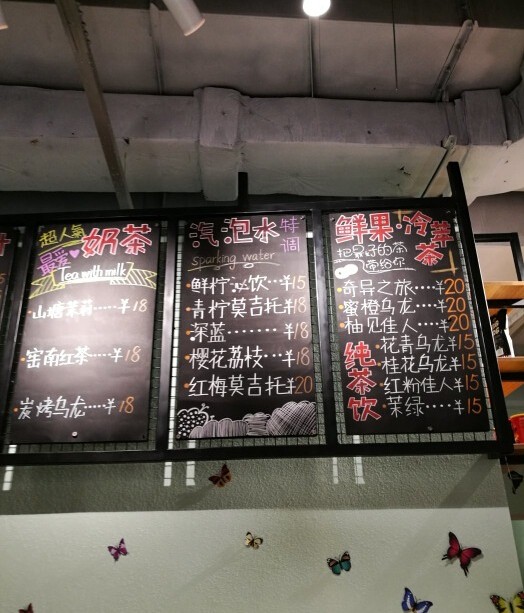 超人氣
最爱
奶茶
Tea with milk
山塘茉莉.....¥18
窑南红茶....¥18
炭烤乌龙....¥18
汽泡水
特调
Sparking water
鲜柠 饮...¥15
青柠莫吉托¥18
深蓝.......¥18
樱花荔枝...¥18
红梅莫吉托¥20
鲜果·冷萃茶
把最好的茶
带给你
奇异之旅....¥20
蜜橙乌龙....¥20
柚见佳人....¥20
纯茶饮
花青乌龙¥15
桂花乌龙¥15
红粉佳人¥15
茉绿....¥15